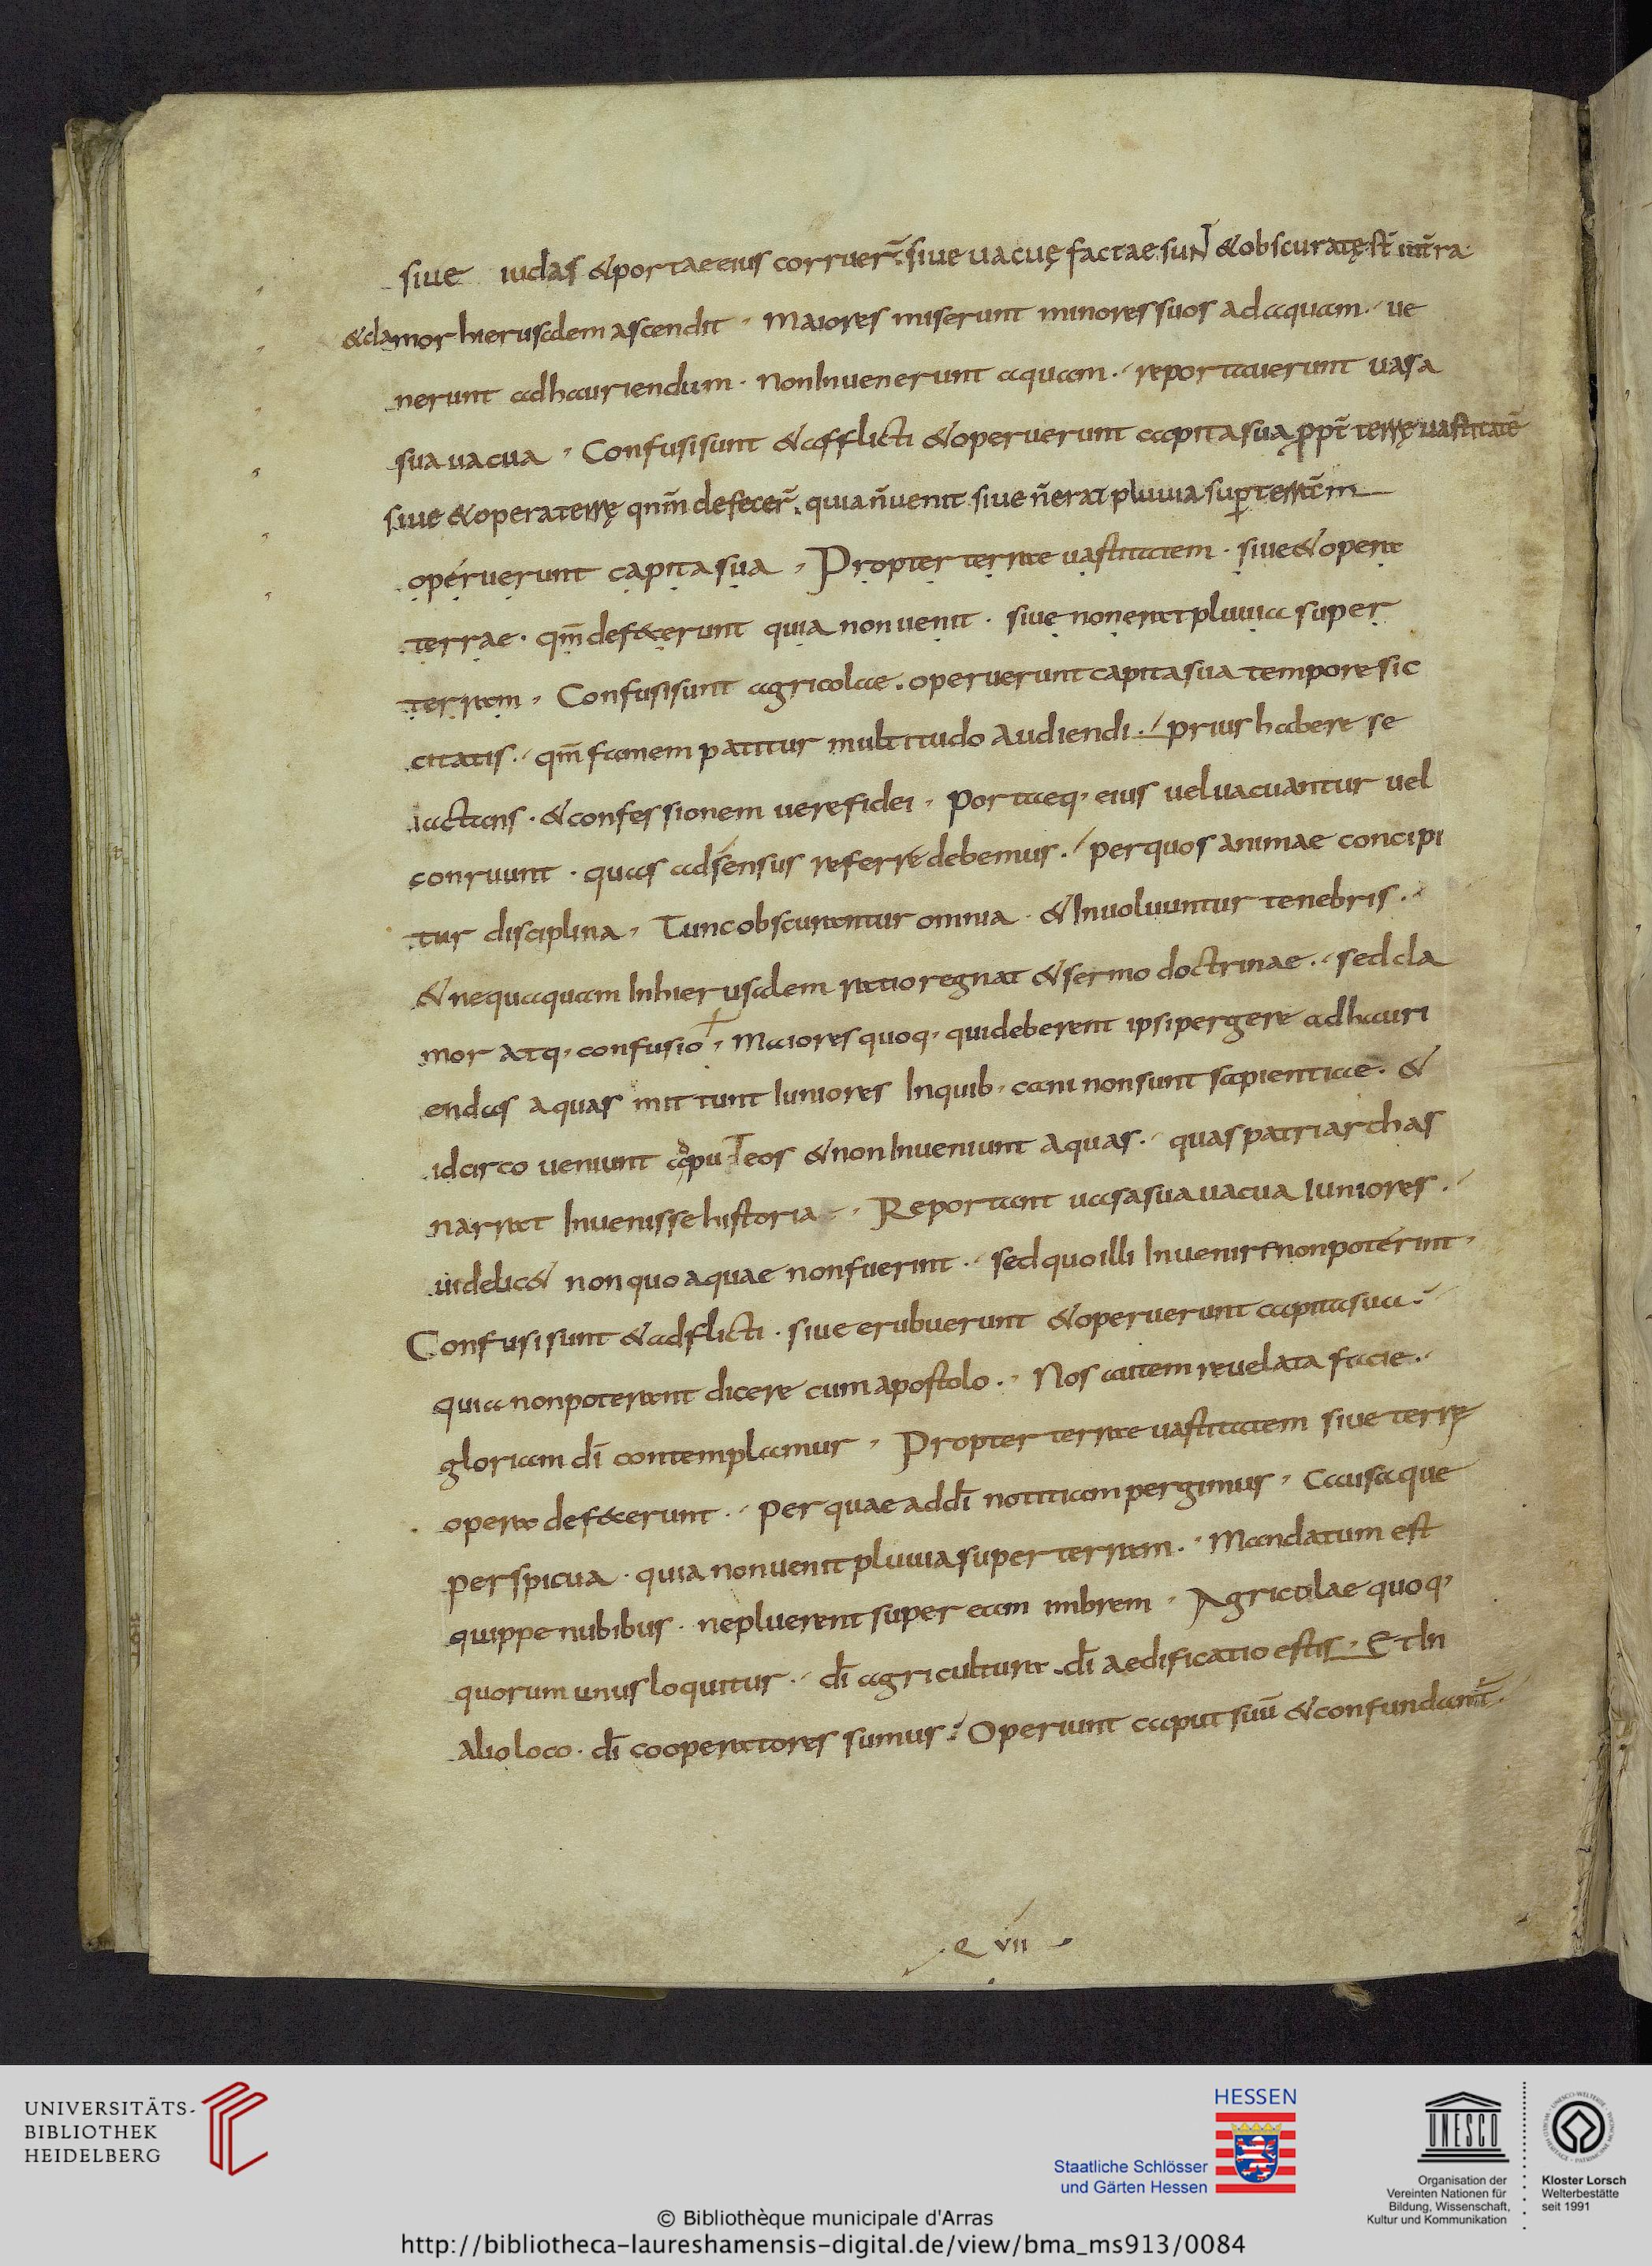 siue iudas &portaeeius corruer̄ siue uacuę factaesuNT &obscuratę st̄ in t̄ra
&clamor hierusalem ascendit · Maiores miserunt minores suos adaquam · ue
nerunt adhauriendum · nonInuenerunt aquam · reportauerunt uasa
sua uacua · Confusi sunt &afflicti &operuerunt capita sua ꝓpt̄ terrę uastitatē
siue &opera terrę qnm̄ defecer̄ · quia n̄ uenit siue n̄ erat pluuia sup terram
operuerunt capita sua · Propter terrae uastitatem · siue &opera
terrae · qm̄ def&cerunt quia non uenit · siue non erat pluuia super
terram · Confusi sunt agricolae · operuerunt capita sua tempore sic
citatis · qm̄ famem patitur multitudo audiendi · prius habere se
iactans · &confessionem uerefidei · portaeq· eius uel uacuantur uel
conruunt · quas adsensus referre debemus · perquos animae concipi
tur disciplina · Tunc obscurantur omnia · &Inuoluuntur tenebris ·
&nequaquam Inhierusalem ratio regnat &sermo doctrinae · sed cla
mor atq· confusio · Maiores quoq· quideberent ipsi pergere adhauri
endas aquas mittunt Iuniores Inquib· cani non sunt sapientiae · &
idcirco ueniunt adpuTeos &non Inueniunt aquas · quas patriarchas
narrat Inuenisse historia · Reportant uasa sua uacua iuniores ·
uidelic& non quo aquae non fuerint · sed quo illi Inuenire non poterint ·
Confusi sunt &adflicti · siue erubuerunt &operuerunt capita sua ·
quia non poterant dicere cum apostolo · Nos autem reuelata facie ·
gloriam dī contemplamur · Propter terrae uastitatem siue terrę
opera def&cerunt · per quae addī notitiam pergimus · Causaque
perspicua · quia non uenit pluuia super terram · Mandatum est
quippe nubibus · ne pluerent super eam imbrem · Agricolae quoq·
quorum unus loquitur · dī agricultura · dī aedificatio estis · Et In
alio loco · dī cooperatores sumus · Operiunt caput suū &confundant̄
Q VII
UNIVERSITÄTS-
BIBLIOTHEK
HEIDELBERG
HESSEN
Staatliche Schlösser
und Gärten Hessen
UNESCO
Organisation der
Vereinten Nationen für
Bildung, Wissenschaft,
Kultur und Kommunikation
Kloster Lorsch
Welterbestätte
seit 1991
© Bibliothèque municipale d'Arras
http://bibliotheca-laureshamensis-digital.de/view/bma_ms913/0084